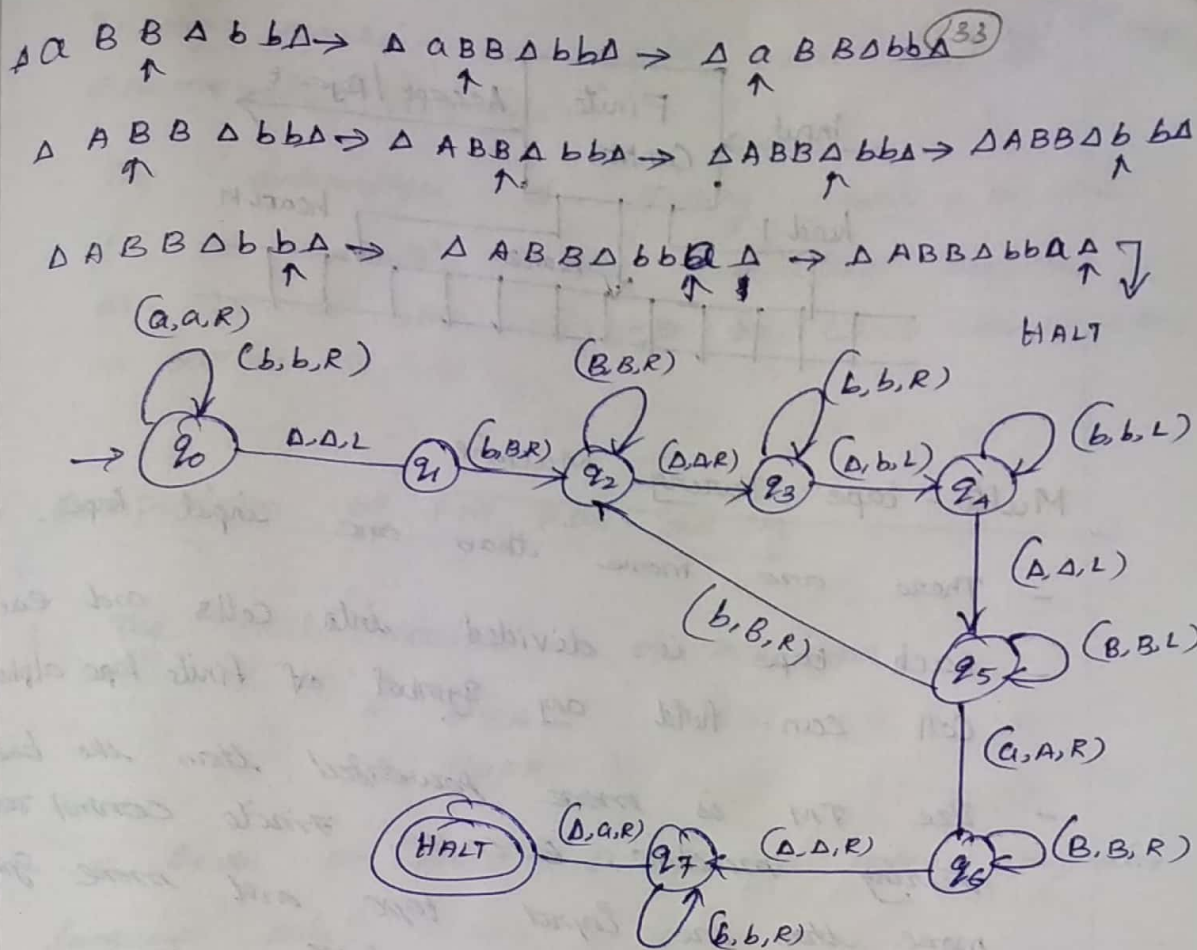 Δ a B B Δ b b Δ → Δ a B B Δ b b Δ → Δ a B B Δ b b Δ 133
↑ ↑ ↑
Δ A B B Δ b b Δ → Δ A B B Δ b b Δ → Δ A B B Δ b b Δ → Δ A B B Δ b b Δ
↑ ↑ ↑ ↑
Δ A B B Δ b b Δ → Δ A B B Δ b b a Δ → Δ A B B Δ b b a Δ
↑ ↑ ↑
HALT
(a,a,R)
(b,b,R) (B,B,R) (b,b,R)
→ q0 Δ,Δ,L q1 (b,B,R) q2 (Δ,Δ,R) q3 (Δ,b,L) q4 (b,b,L)
(Δ,Δ,L)
(b,B,R) q5 (B,B,L)
(a,A,R)
HALT (Δ,a,R) q7 (Δ,Δ,R) q6 (B,B,R)
(b,b,R)